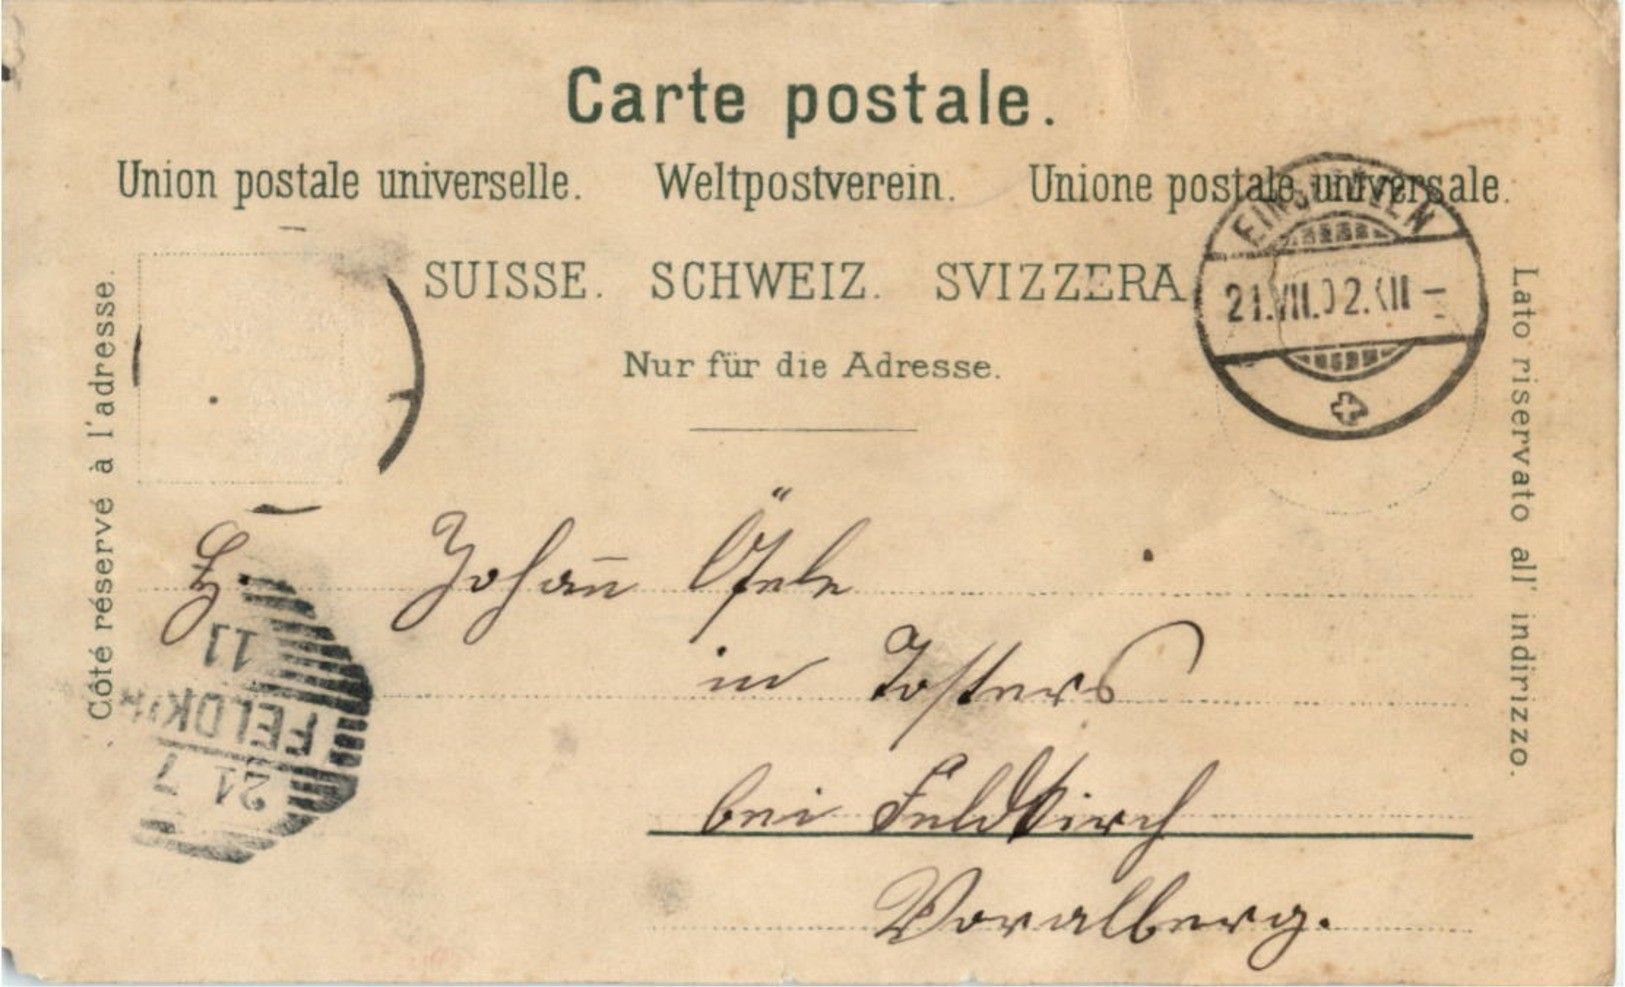 Carte postale.
Union postale universelle. Weltpostverein. Unione postale universale.
SUISSE. SCHWEIZ. SVIZZERA
Nur für die Adresse.
Côté réservé à l'adresse.
Lato riservato all' indirizzo.
EINSIEDELN
21.VII.02.XII-
H. Johan̄
in Tosters
bei Feldkirch
Voralberg.
11
FELDK
21 7